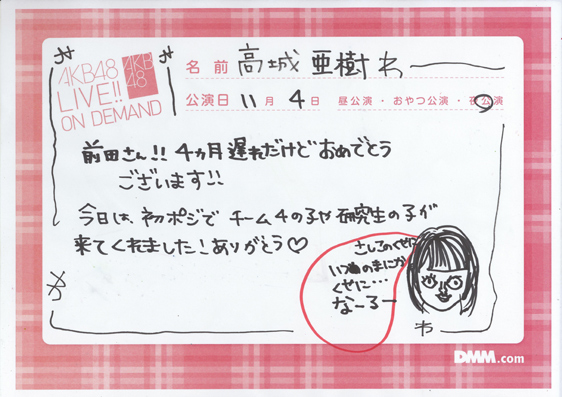 AKB48
LIVE!!
ON DEMAND
AKB
48
名前 高城亜樹
公演日 11月 4日 昼公演・おやつ公演・夜公演
前田さん!! 4ヵ月遅れだけどおめでとう
ございます!!
今日は、初ポジで チーム4の子や研究生の子が
来てくれました！ありがとう♡
さしこのくせに
いつのまにか
くせに…
なーるー
DMM.com